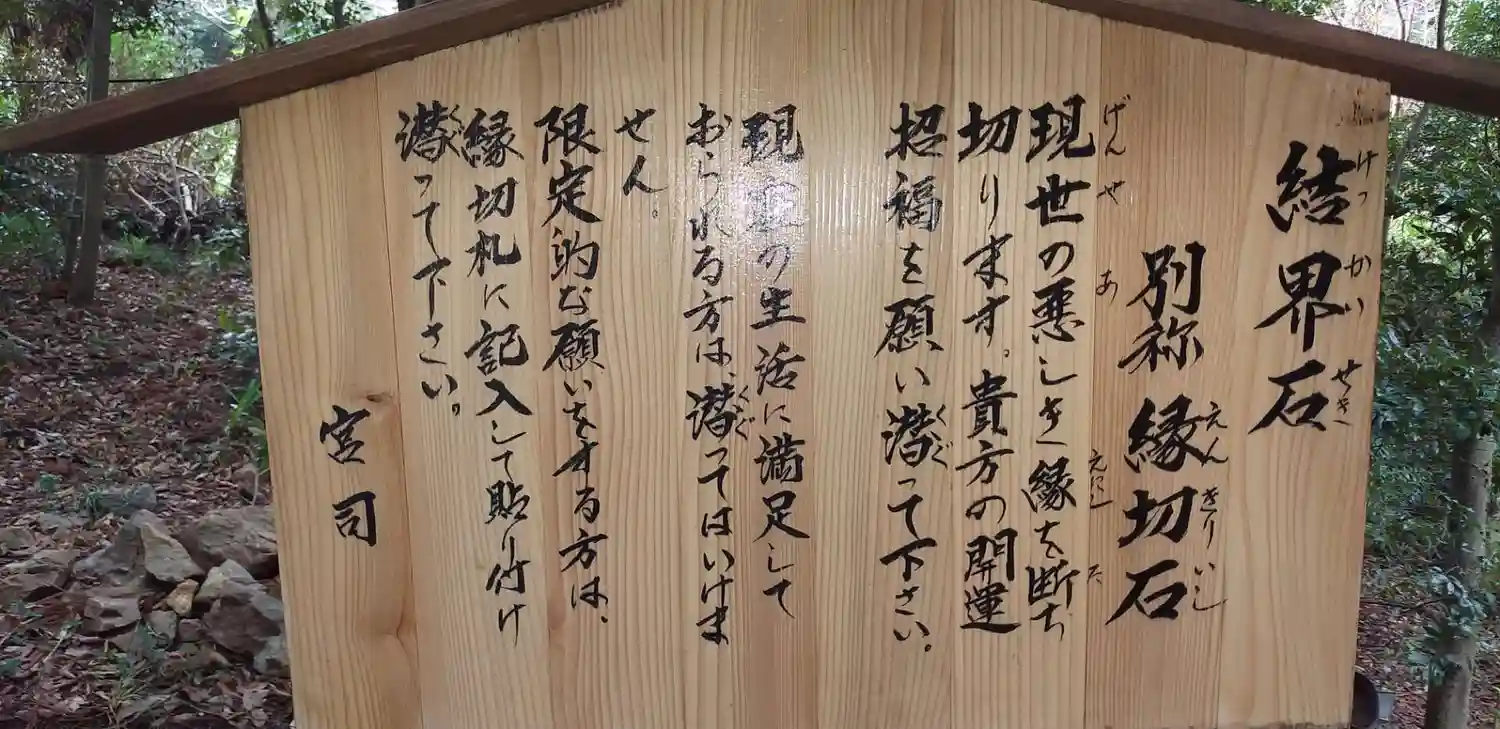 けっかいせき
結界石
えんぎりいし
別称 縁切石
げんせ あ えにし た
現世の悪しき縁を断ち
切ります。貴方の開運
くぐ
招福を願い潜って下さい。
現在の生活に満足して
くぐ
おられる方は、潜ってはいけま
せん。
限定的な願いをする方は、
縁切札に記入して貼り付け
くぐ
潜って下さい。
宮司